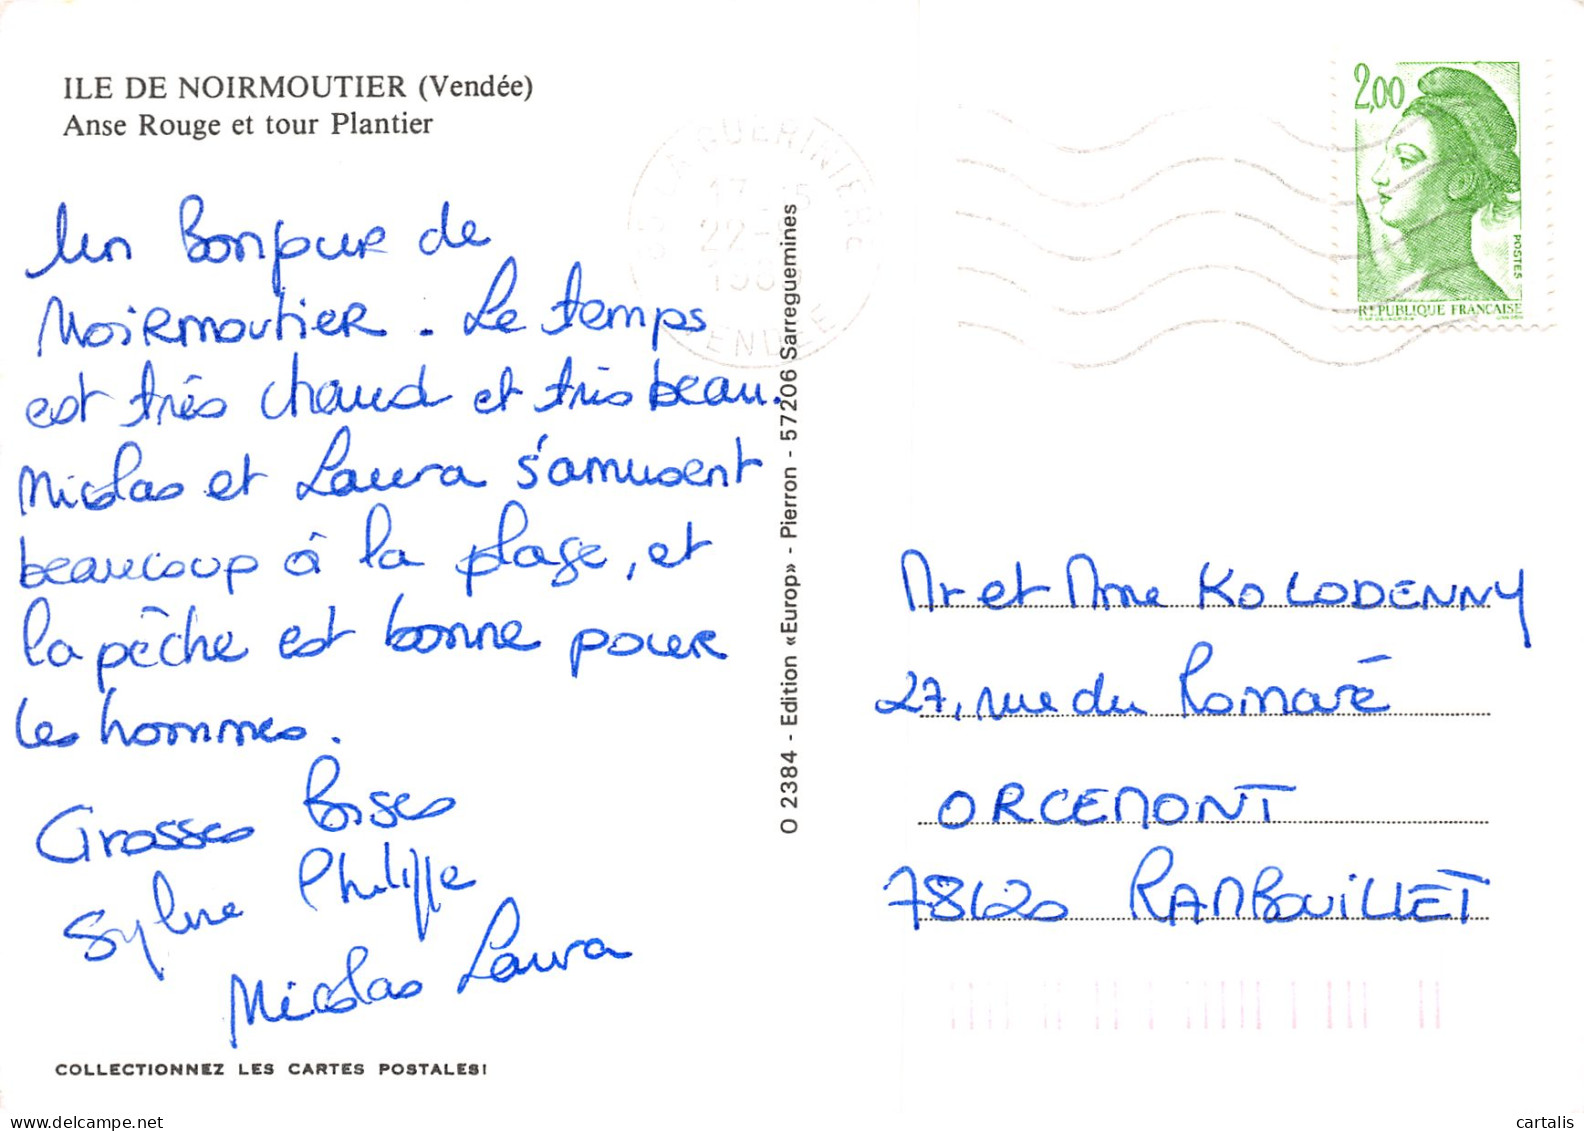 ILE DE NOIRMOUTIER (Vendée)
Anse Rouge et tour Plantier
Un Bonjour de
Noirmoutier. Le temps
est très chaud et très beau.
Nicolas et Laura s'amusent
beaucoup à la plage, et
la pêche est bonne pour
les hommes.
Grosses Bises
Sylvie Philippe
Nicolas Laura
COLLECTIONNEZ LES CARTES POSTALES!
O 2384 - Edition «Europ» - Pierron - 57206 Sarreguemines
LA GUERINIERE
22-8
VENDEE
2,00
POSTES
REPUBLIQUE FRANÇAISE
Mr et Mme KOLODENNY
27, rue du Romaré
ORCEMONT
78120 RAMBOUILLET
delcampe.net
cartalis